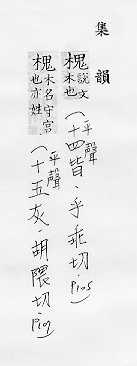 集韻
槐說文木也(平聲十四皆·乎乖切·P105)
槐木名守宮也亦姓(平聲十五灰·胡隈切·P109)